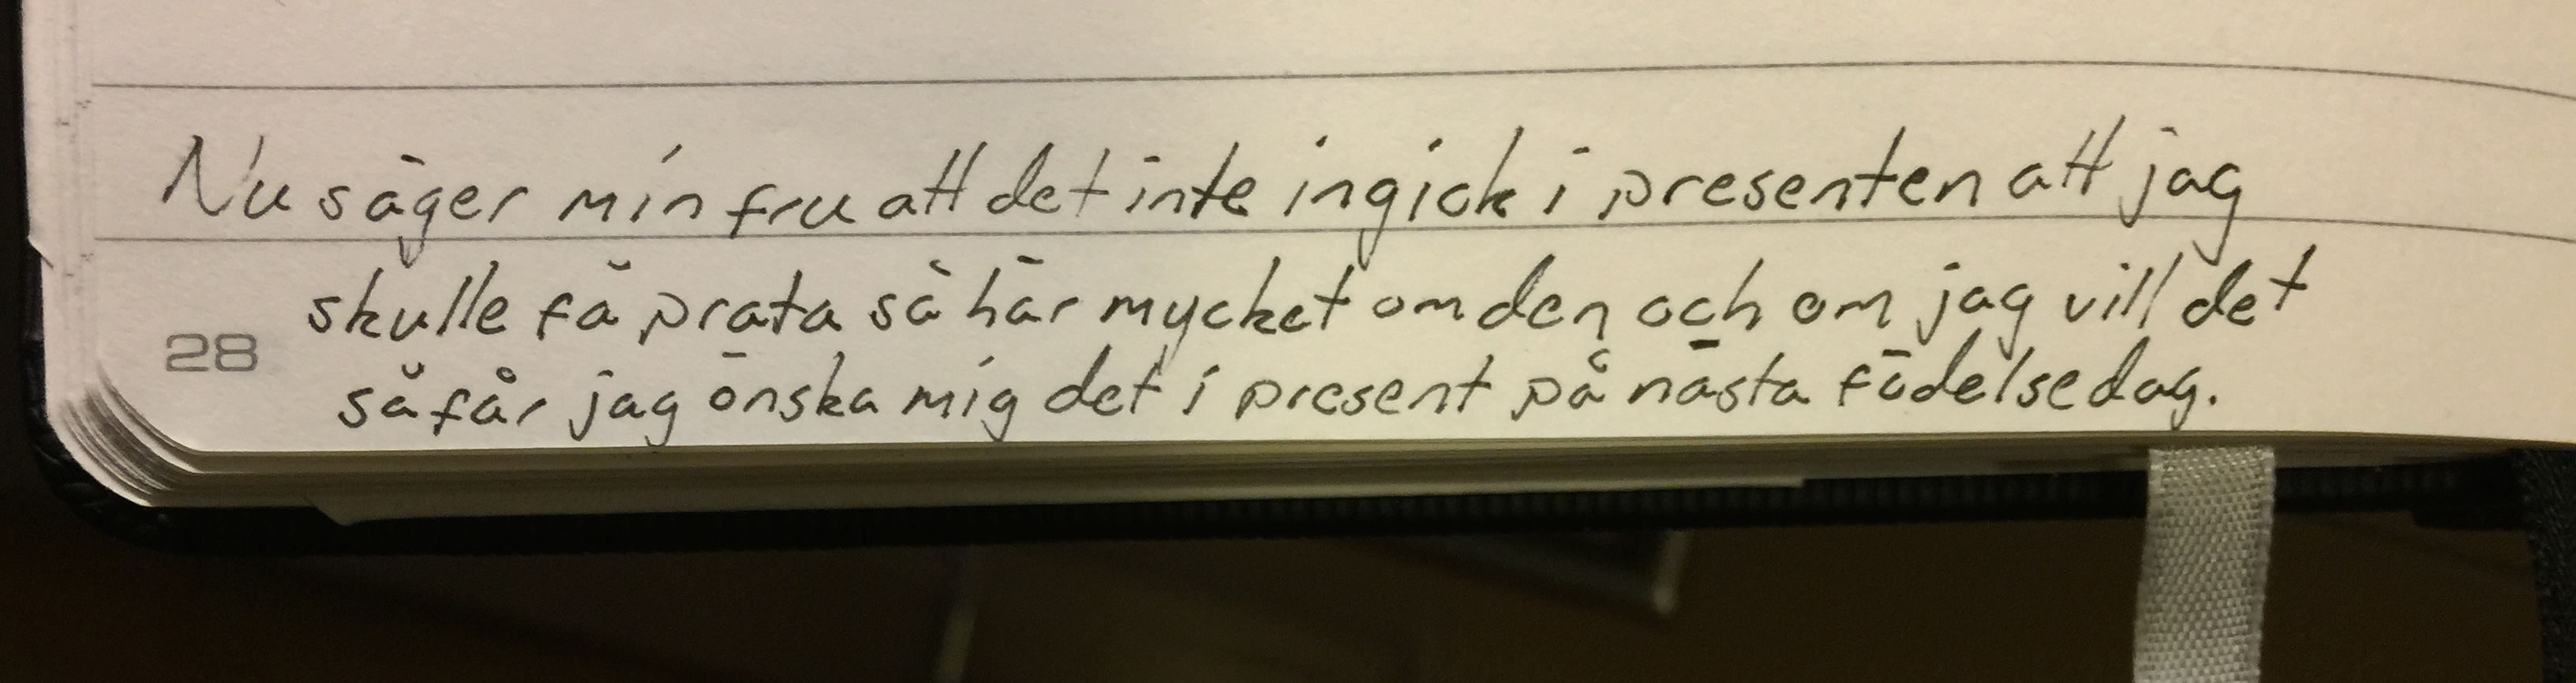 Nu säger min fru att det inte ingick i presenten att jag
skulle få prata så här mycket om den och om jag vill det
28
så får jag önska mig det i present på nästa födelsedag.